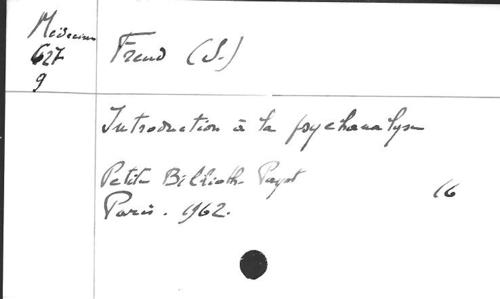 Médecine
627
9
Freud (S.)
Introduction à la psychanalyse
Petite Biblioth. Payot
16
Paris. 1962.